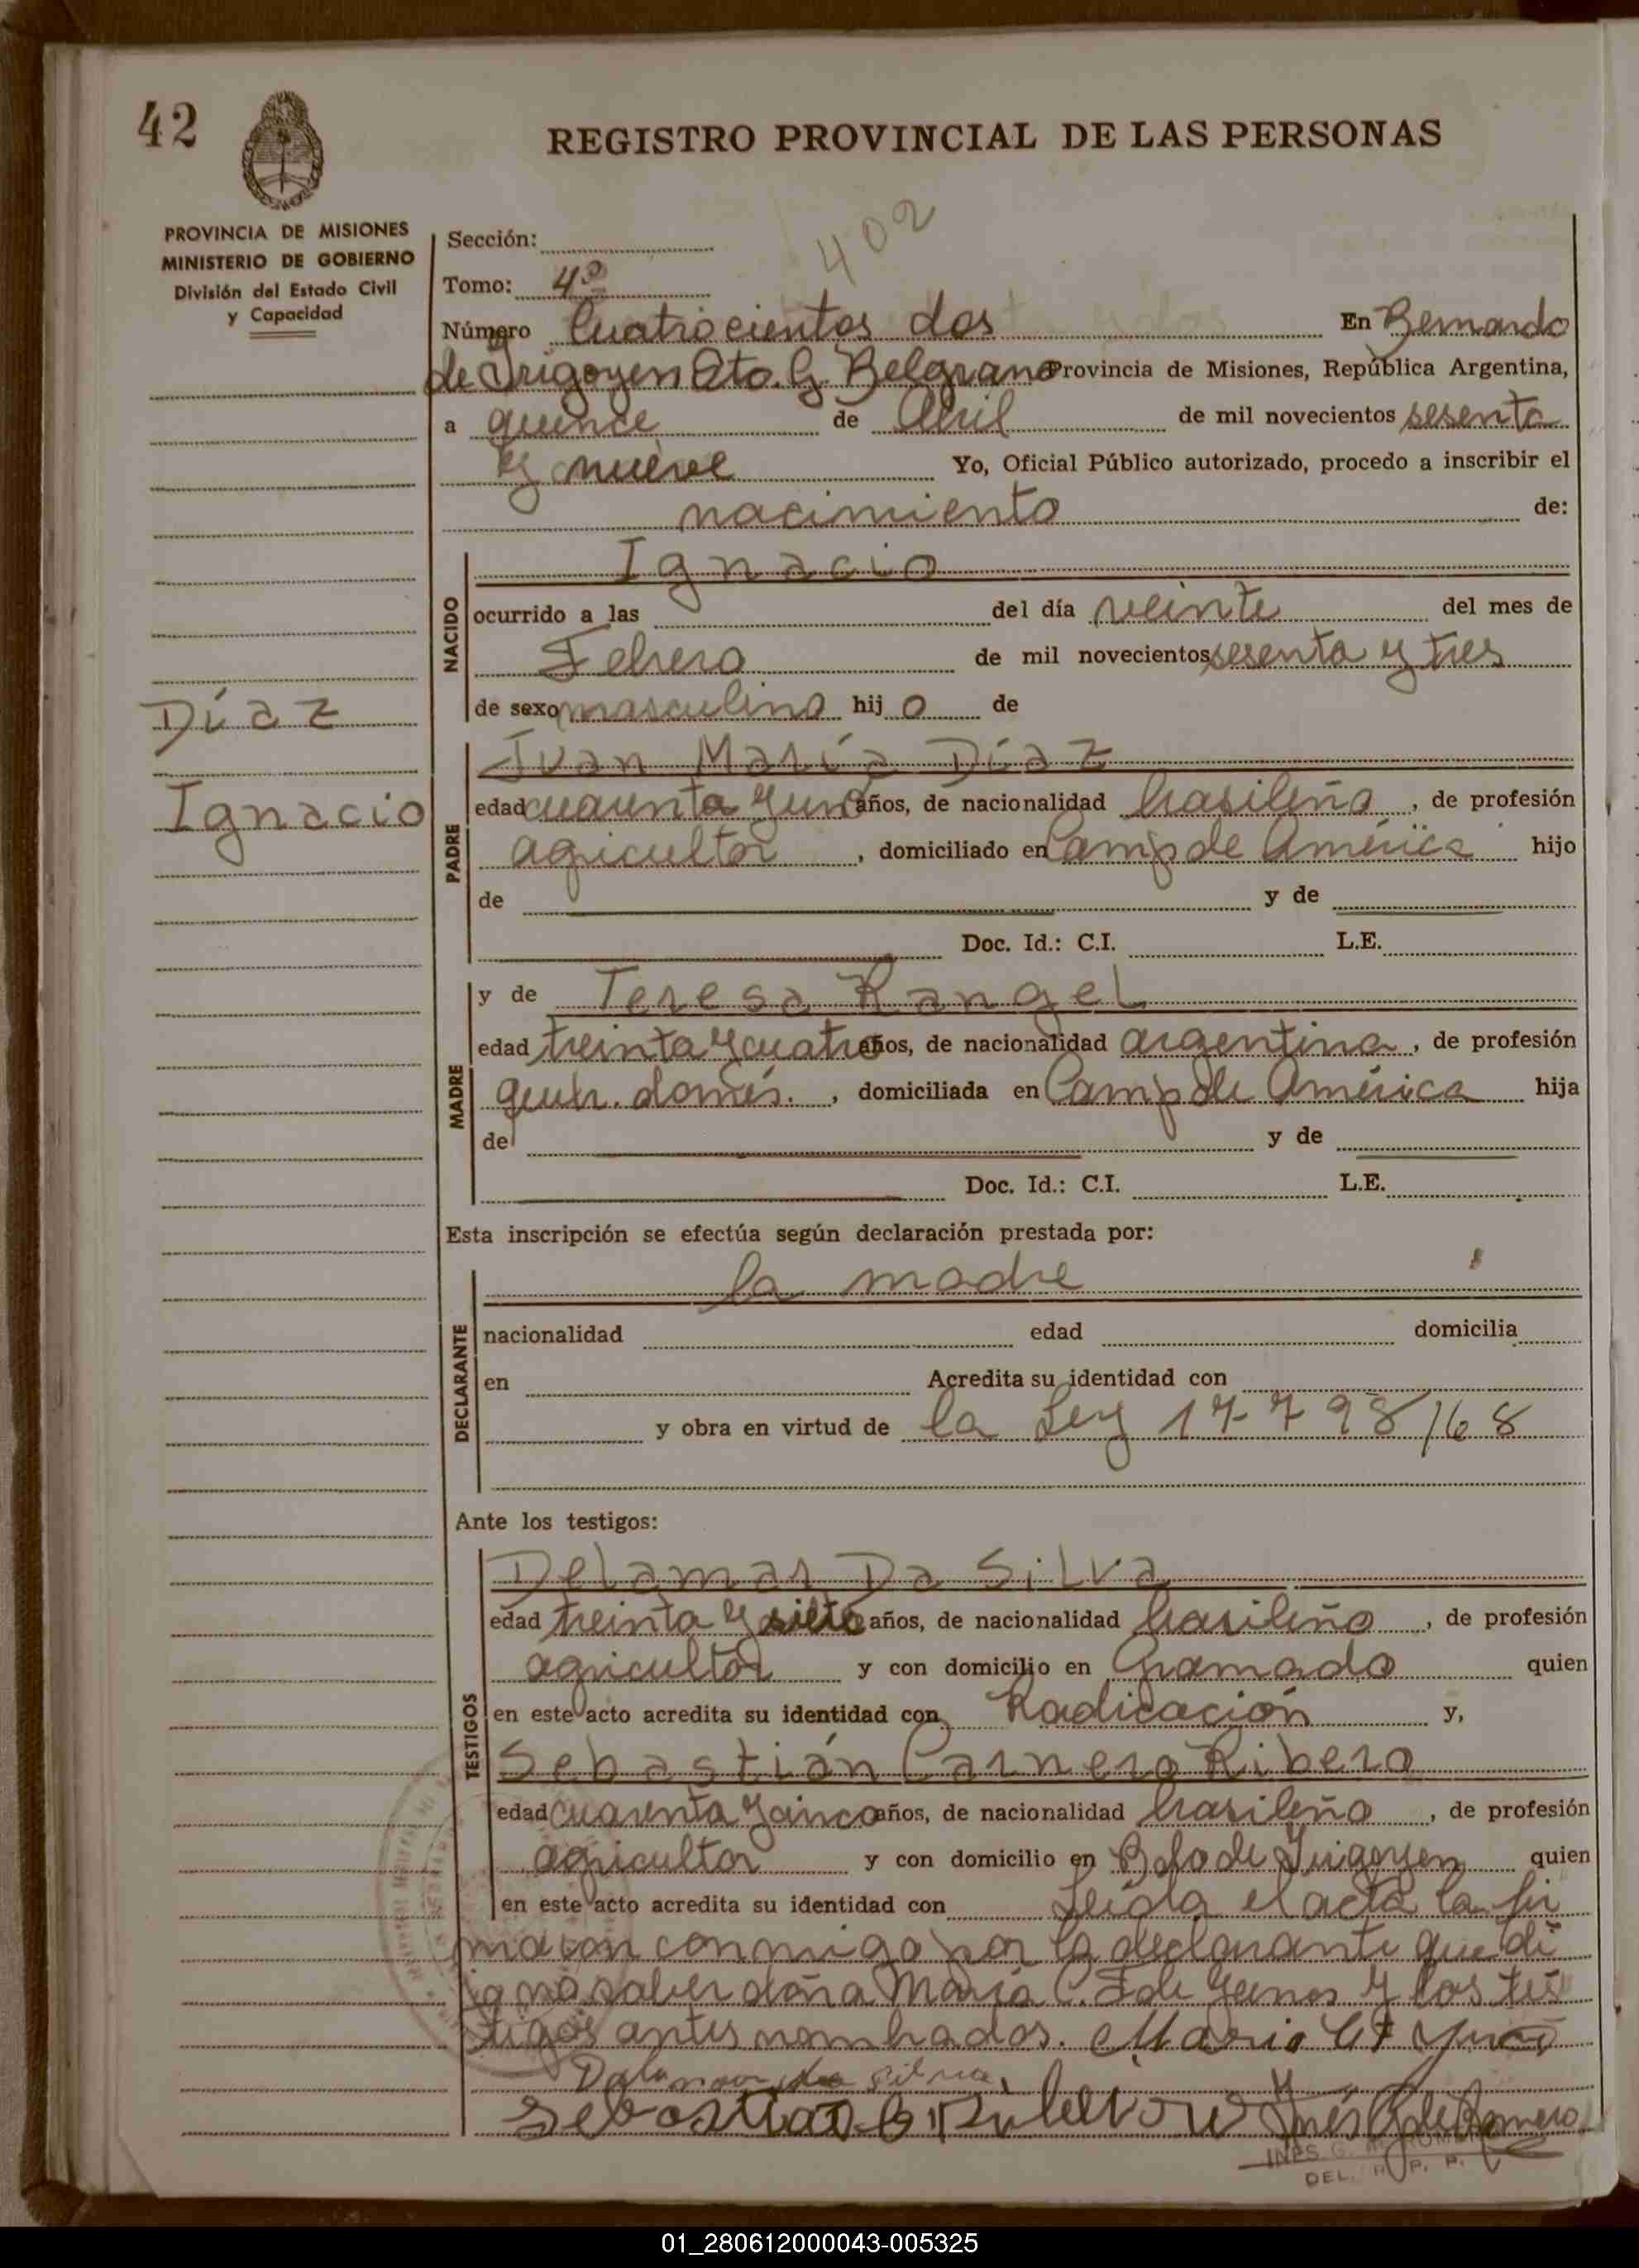 42
REGISTRO PROVINCIAL DE LAS PERSONAS
PROVINCIA DE MISIONES
MINISTERIO DE GOBIERNO
División del Estado Civil
y Capacidad
402
Sección:
Tomo: 4º
Número Cuatrocientos dos En Bernardo
de Irigoyen Dto. G. Belgrano Provincia de Misiones, República Argentina,
a quince de Abril de mil novecientos sesenta
y nueve Yo, Oficial Público autorizado, procedo a inscribir el
nacimiento de:
NACIDO
Ignacio
ocurrido a las del día veinte del mes de
Febrero de mil novecientos sesenta y tres
de sexo masculino hij o de
Díaz
Ignacio
PADRE
Juan María Díaz
edad cuarenta y un años, de nacionalidad brasileña, de profesión
agricultor, domiciliado en Camp de América hijo
de y de
Doc. Id.: C.I. L.E.
MADRE
y de Teresa Rangel
edad treinta y cuatro años, de nacionalidad argentina, de profesión
queh. domés., domiciliada en Camp de América hija
de y de
Doc. Id.: C.I. L.E.
Esta inscripción se efectúa según declaración prestada por:
DECLARANTE
la madre
nacionalidad edad domicilia
en Acredita su identidad con
y obra en virtud de la Ley 17798/68
Ante los testigos:
TESTIGOS
Delamar Da Silva
edad treinta y siete años, de nacionalidad brasileña, de profesión
agricultor y con domicilio en Gramado quien
en este acto acredita su identidad con Radicación y,
Sebastián Carnero Ribero
edad cuarenta y cinco años, de nacionalidad brasileña, de profesión
agricultor y con domicilio en Bdo de Irigoyen quien
en este acto acredita su identidad con Leída el acta la fir
maron conmigo por la declarante que di
ja no saber doña María C. F de Yunes y los tes
tigos antes nombrados.
INES G.
DEL. R. P. P.
01_280612000043-005325